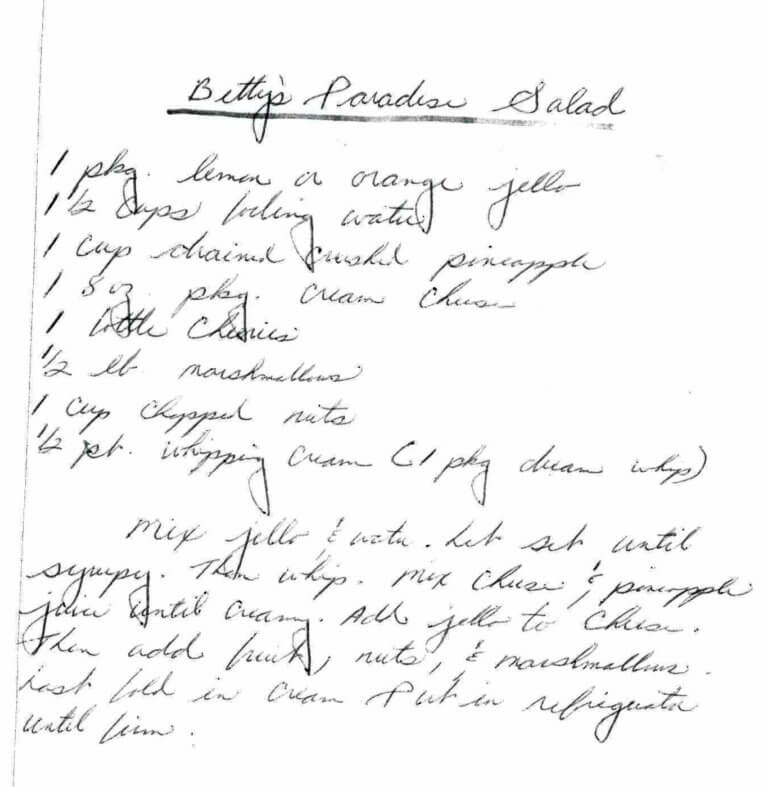 Betty's Paradise Salad
1 pkg. lemon or orange jello
1 1/2 cups boiling water
1 cup drained crushed pineapple
1 8 oz pkg. cream cheese
1 bottle cherries
1/2 lb marshmallows
1 cup chopped nuts
1/2 pt. whipping cream (1 pkg dream whip)
Mix jello & water. Let set until
syrupy. Then whip. Mix cheese & pineapple
juice until creamy. Add jello to cheese.
Then add fruit, nuts, & marshmallows.
Last fold in cream Put in refrigerator
until firm.